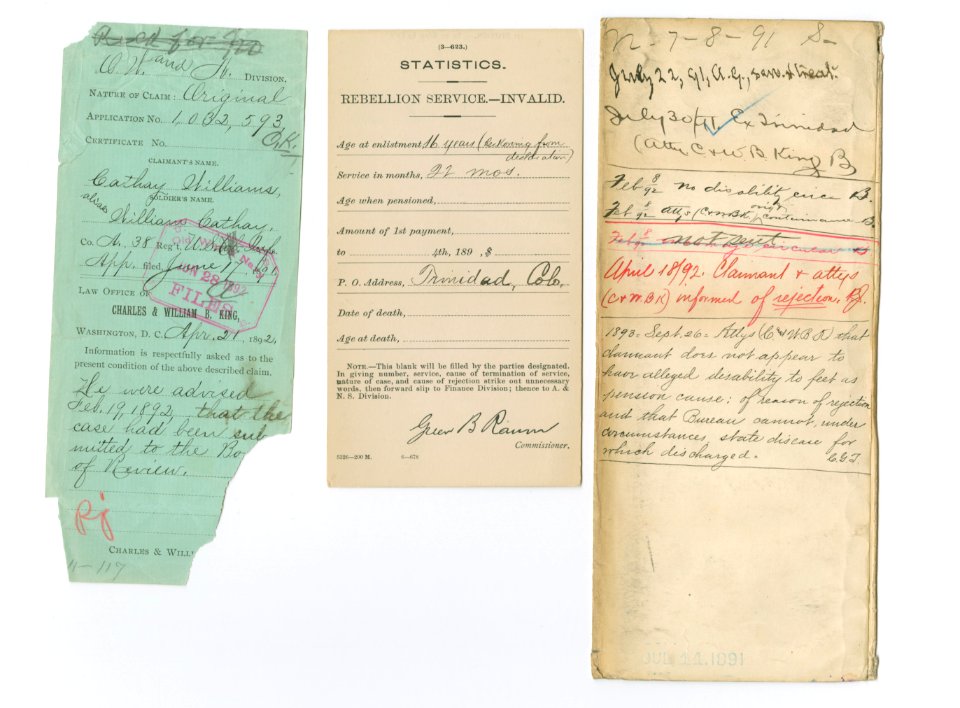 O.W. and N. DIVISION.
NATURE OF CLAIM: Original
APPLICATION NO. 1,032,593,
CERTIFICATE NO.
CLAIMANT'S NAME.
Cathay Williams,
SOLDIER'S NAME.
alias William Cathay.
Co. A, 38 Reg't U.S.
App. filed June 17, 1891
JUN 28 1892
FILES
LAW OFFICE OF
CHARLES & WILLIAM B. KING,
WASHINGTON, D. C. Apr. 21, 1892
Information is respectfully asked as to the
present condition of the above described claim.
were advised
Feb. 19, 1892 that the
case had been sub
mitted to the Bo
of Review.
Rj
CHARLES & WILLI
11-117
(3—623.)
STATISTICS.
REBELLION SERVICE.—INVALID.
Age at enlistment, 16 years (Reckoning from
declaration)
Service in months, 22 mos.
Age when pensioned,
Amount of 1st payment,
to 4th, 189 , $
P. O. Address, Trinidad, Colo,
Date of death,
Age at death,
NOTE.—This blank will be filled by the parties designated.
In giving number, service, cause of termination of service,
nature of case, and cause of rejection strike out unnecessary
words, then forward slip to Finance Division; thence to A. &
N. S. Division.
Green B Raum
Commissioner.
5326—200 M. 6—678
7-8-91
July 22, 91, A.G., serv. & treat.
July 30/91 Ex Trinidad
(Atty C & W. B. King B
Feb 8/92 no disability B.
Feb 8/92 attys (C & W BK) B.
not sent
April 18/92. Claimant & attys
(C & W. B K) informed of rejection. Rj.
1893-Sept. 26- Attys (C & W B K) that
claimant does not appear to
have alleged desability to feet as
pension cause; of reason of rejection
and that Bureau cannot, under
circumstances, state disease for
which discharged.
JUL 14 1891